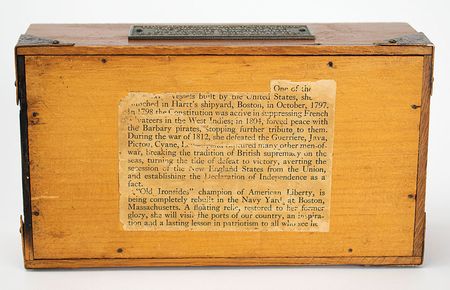 One of the
vessels built by the United States, she
launched in Hartt's shipyard, Boston, in October, 1797.
In 1798 the Constitution was active in suppressing French
in the West Indies; in 1804, forced peace with
the Barbary pirates, stopping further tribute to them.
During the war of 1812, she defeated the Guerriere, Java,
Pictou, Cyane, captured many other men-of-
war, breaking the tradition of British supremacy on the
seas, turning the tide of defeat to victory, averting the
secession of the New England States from the Union,
and establishing the Declaration of Independence as a
fact.
"Old Ironsides" champion of American Liberty, is
being completely rebuilt in the Navy Yard, at Boston,
Massachusetts. A floating relic, restored to her former
glory, she will visit the ports of our country, an inspira-
tion and a lasting lesson in patriotism to all who see her.